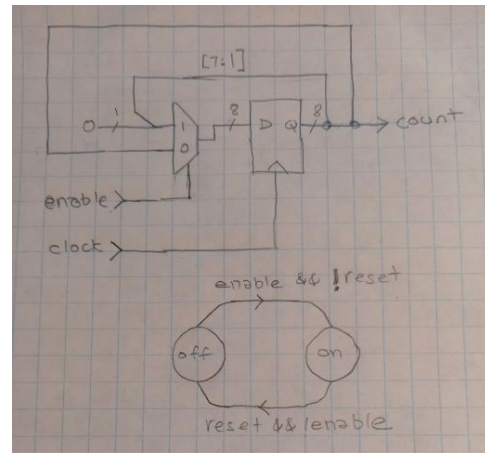 [7:1]
1
0
1
0
8
D
Q
8
count
enable
clock
enable && !reset
off
on
reset && !enable